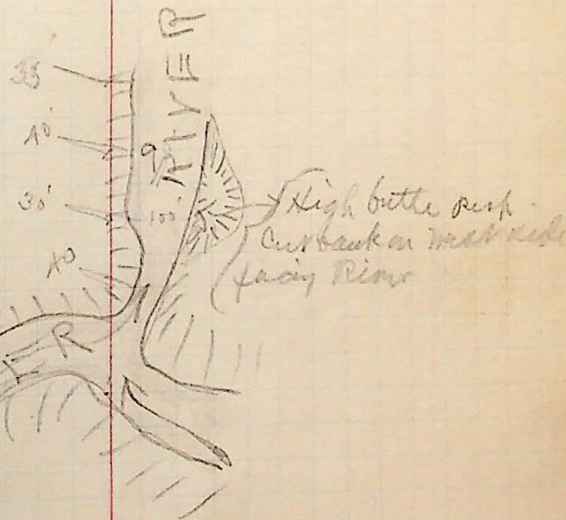 RIVER
35'
40'
30'
100'
40
ER
High butte
Cutbank on West side
facing River